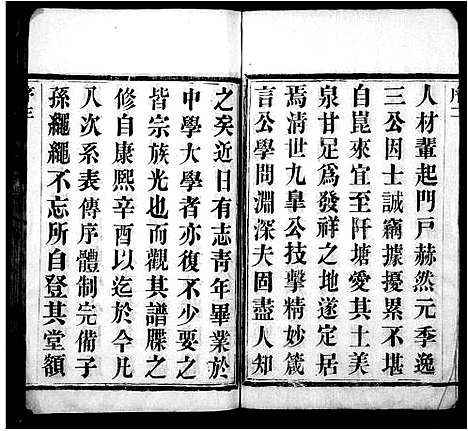 序二
人材輩起門戶赫然元季逸
三公因士誠竊據擾累不堪
自崑來宜至阡塘愛其土美
泉甘足爲發祥之地遂定居
焉清世九皐公技擊精妙箴
言公學問淵深夫固盡人知
之矣近日有志靑年畢業於
中學大學者亦復不少要之
皆宗族光也而觀其譜牒之
修自康熙辛酉以迄於今凡
八次系表傳序體制完備子
孫繩繩不忘所自登其堂額
序三